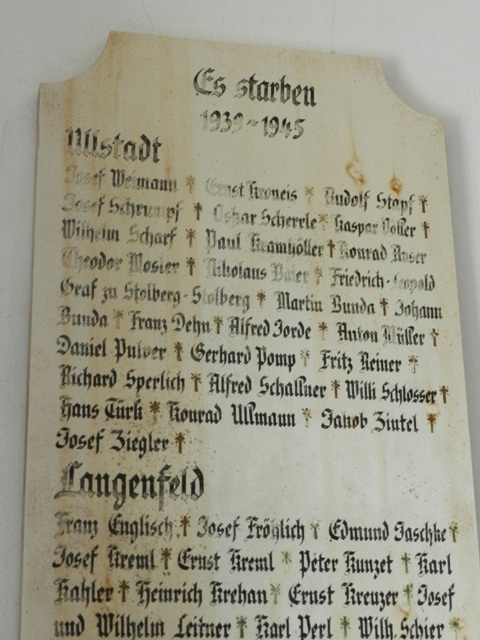 Es starben
1939-1945
Ullstadt
Josef Weimann † Ernst Kroneis † Rudolf Stapf †
Josef Schrumpf † Oskar Scherrle † Kaspar Döller †
Wilhelm Scharf † Paul Kamhöller † Konrad
Theodor Mosier † Nikolaus Baier † Friedrich-Leopold
Graf zu Stolberg-Stolberg † Martin Bunda † Johann
Bunda † Franz Dehn † Alfred Jorde † Anton Müller †
Daniel Pulver † Gerhard Pomp † Fritz Reiner †
Richard Sperlich † Alfred Schallner † Willi Schlosser †
Hans Türk † Konrad Ullmann † Jakob Zintel †
Josef Ziegler †
Langenfeld
Franz Englisch † Josef Fröhlich † Edmund Jaschke †
Josef Kreml † Ernst Kreml † Peter Kunzet † Karl
Kahler † Heinrich Krehan † Ernst Kreuzer † Josef
und Wilhelm Leitner † Karl Perl † Wilh. Schier †